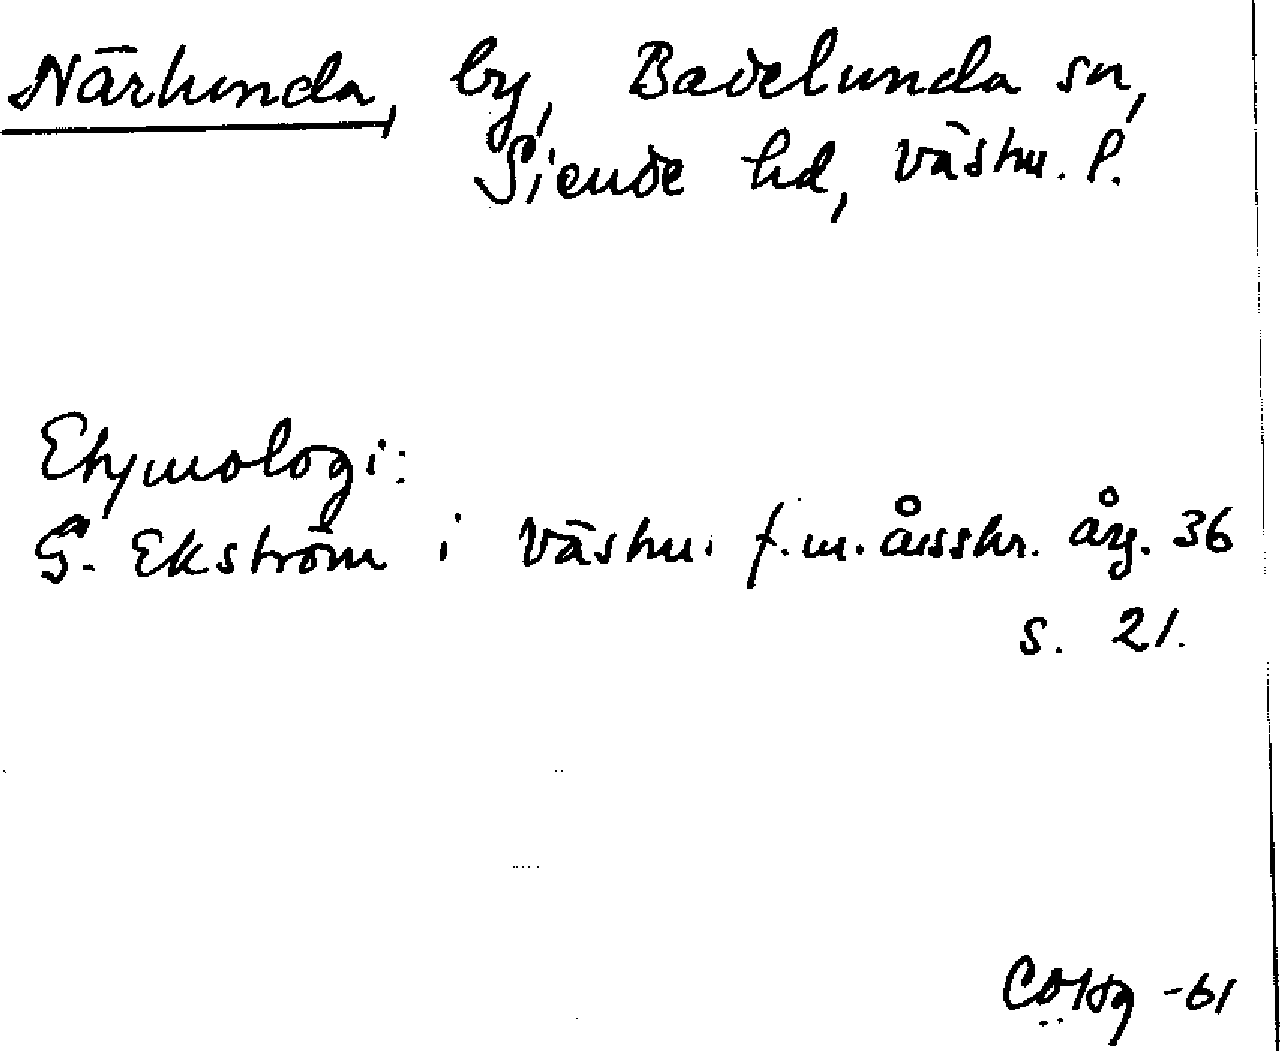 Närlunda, by, Badelunda sn,
Siende hd, Västm. l.
Etymologi:
G. Ekström i Västm. f.m. årsskr. årg. 36
s. 21.
-61